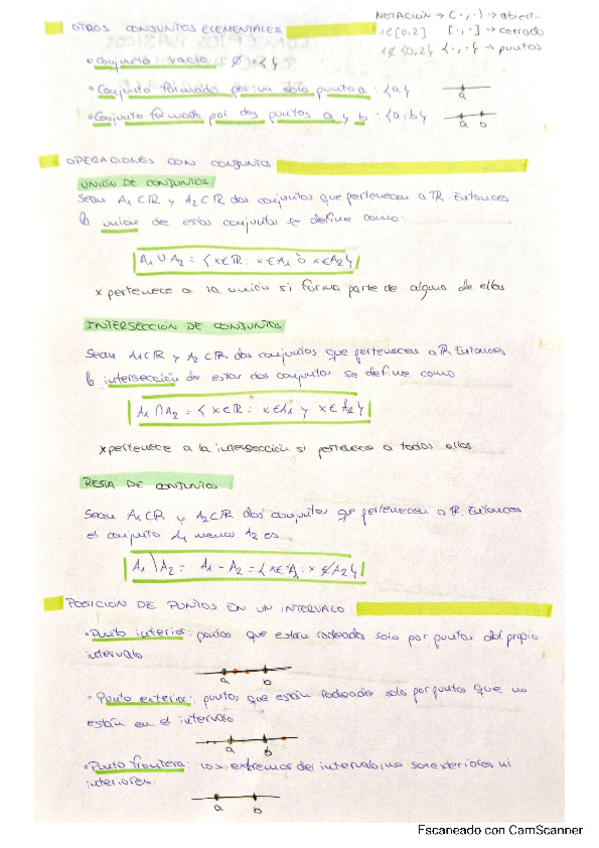 OTROS CONJUNTOS ELEMENTALES
NOTACIÓN → (·,·) → abiert.
1∈[0,2] [·,·] → cerrado
1∉{0,2} {·,·} → puntos
• Conjunto vacío: ∅ = { }
• Conjunto formado por un solo punto a: {a}
a
• Conjunto formado por dos puntos a y b: {a,b}
a b
OPERACIONES CON CONJUNTOS
UNIÓN DE CONJUNTOS
Sean A1⊂ℝ y A2⊂ℝ dos conjuntos que pertenecen a ℝ. Entonces
la unión de estos conjuntos se define como:
A1 ∪ A2 = { x∈ℝ : x∈A1 ó x∈A2 }
x pertenece a la unión si forma parte de alguno de ellos
INTERSECCIÓN DE CONJUNTOS
Sean A1⊂ℝ y A2⊂ℝ dos conjuntos que pertenecen a ℝ. Entonces
la intersección de estos dos conjuntos se define como
A1 ∩ A2 = { x∈ℝ : x∈A1 y x∈A2 }
x pertenece a la intersección si pertenece a todos ellos.
RESTA DE CONJUNTOS
Sean A1⊂ℝ y A2⊂ℝ dos conjuntos que pertenecen a ℝ. Entonces
el conjunto A1 menos A2 es
A1 \ A2 = A1 - A2 = { x∈A1 : x∉A2 }
POSICIÓN DE PUNTOS EN UN INTERVALO
• Punto interior: puntos que están rodeados solo por puntos del propio
intervalo
a b
• Punto exterior: puntos que están rodeados solo por puntos que no
están en el intervalo
a b
• Punto frontera: los extremos del intervalo, no son exteriores ni
interiores.
a b
Escaneado con CamScanner